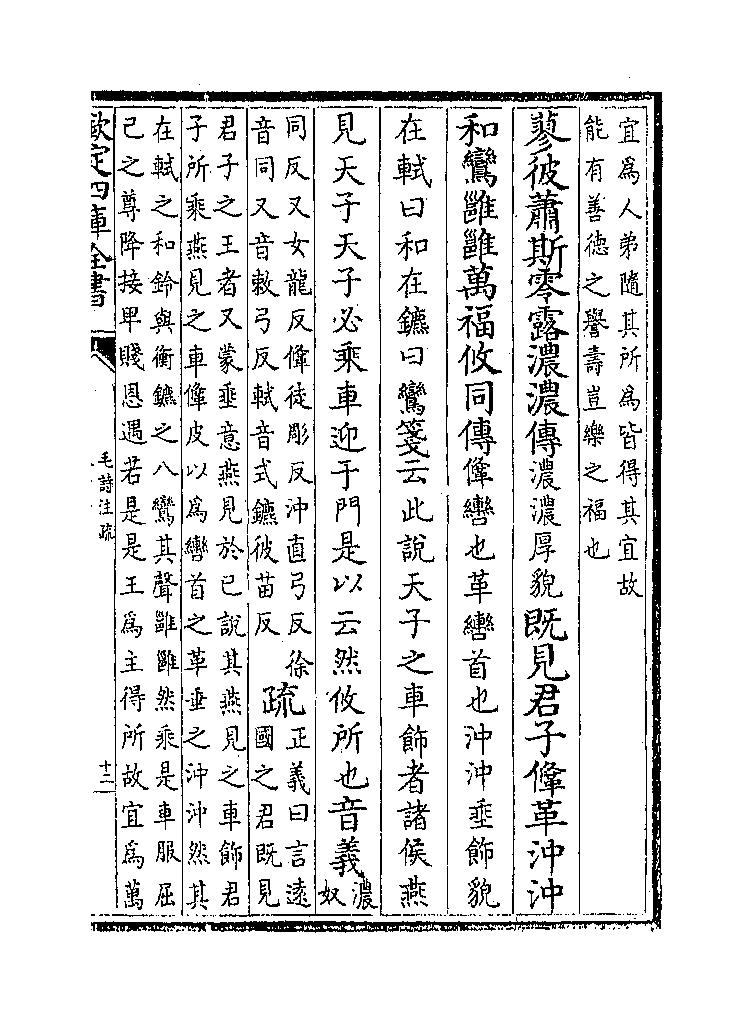 宜為人弟隨其所為皆得其宜故
能有善德之譽壽豈樂之福也
蓼彼蕭斯零露濃濃傳濃濃厚貌既見君子鞗革沖沖
和鸞雝雝萬福攸同傳鞗轡也革轡首也沖沖垂飾貌
在軾曰和在鑣曰鸞箋云此說天子之車飾者諸侯燕
見天子天子必乘車迎于門是以云然攸所也音義濃奴
同反又女龍反鞗徒彫反沖直弓反徐
音同又音敕弓反軾音式鑣彼苗反
疏
正義曰言遠
國之君既見
君子之王者又蒙垂意燕見於已說其燕見之車飾君
子所乘燕見之車鞗皮以為轡首之革垂之沖沖然其
在軾之和鈴與衡鑣之八鸞其聲雝雝然乘是車服屈
已之尊降接卑賤恩遇若是是王為主得所故宜為萬
欽定四庫全書
毛詩注疏
十二